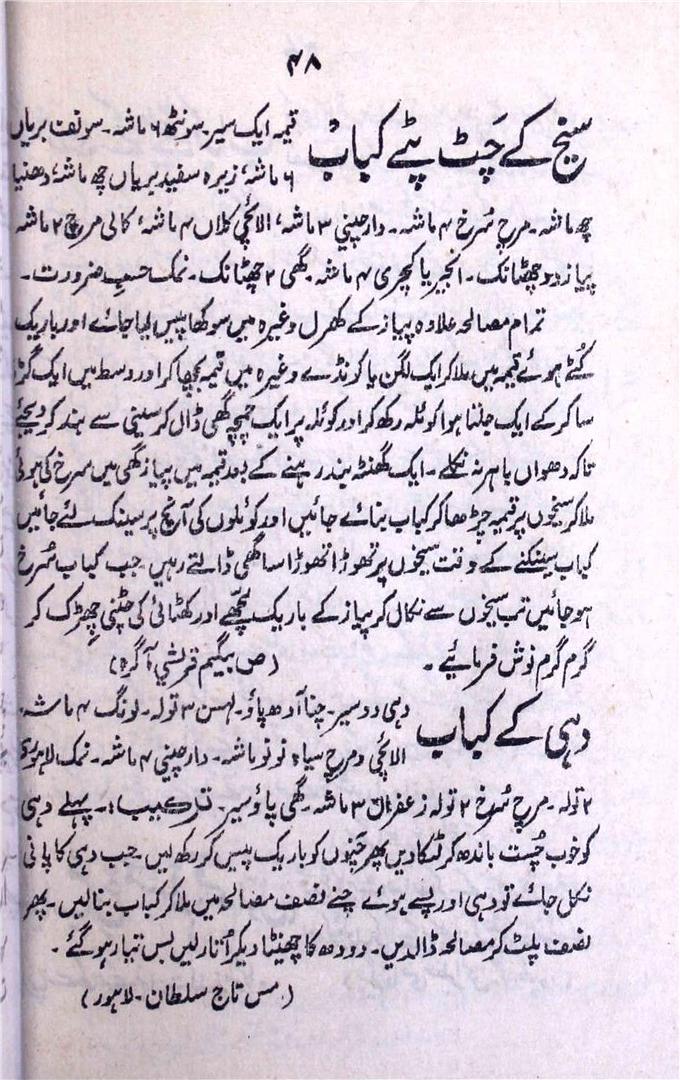 ۴۸
سیخ کے چَٹ پٹے کباب
قیمہ ایک سیر۔ سونٹھ ۶ ماشہ۔ سونف بریاں
۶ ماشہ، زیرہ سفید بریاں چھ ماشہ، دھنیا
چھ ماشہ۔ مرچ سُرخ ۴ ماشہ۔ دارچینی ۳ ماشہ، الائچی کلاں ۴ ماشہ، کالی مرچ ۲ ماشہ
پیاز دو چھٹانک۔ انجیر یا کچری ۴ ماشہ۔ گھی ۲ چھٹانک۔ نمک حسبِ ضرورت۔
تمام مصالحہ علاوہ پیاز کے کھرل وغیرہ میں سوکھا پیس لیا جائے اور باریک
کُٹے ہوئے قیمہ میں ملا کر ایک لگن یا کونڈے وغیرہ میں قیمہ بچھا کر اور وسط میں ایک گڑھا
سا کر کے ایک جلتا ہوا کوئلہ رکھ کر اور کوئلہ پر ایک چمچہ گھی ڈال کر سینی سے بند کر دیجئے
تاکہ دھواں باہر نہ نکلے۔ ایک گھنٹہ بند رہنے کے بعد قیمہ میں پیاز گھی میں سرخ کی ہوئی
ملا کر سیخوں پر قیمہ چڑھا کر کباب بنائے جائیں اور کوئلوں کی آنچ پر سینک لئے جائیں
کباب سینکنے کے وقت سیخوں پر تھوڑا تھوڑا سا گھی ڈالتے رہیں جب کباب سُرخ
ہو جائیں تب سیخوں سے نکال کر پیاز کے باریک لچھے اور کھٹائی کی چٹنی چھڑک کر
گرم گرم نوش فرمائیے۔
(ص بیگم قریشی آگرہ)
دہی کے کباب
دہی دو سیر۔ چنا آدھ پاؤ۔ لہسن ۳ تولہ۔ لونگ ۴ ماشہ۔
الائچی و مرچ سیاہ نو نو ماشہ۔ دارچینی ۴ ماشہ۔ نمک لاہوری
۲ تولہ۔ مرچ سُرخ ۲ تولہ زعفران ۳ ماشہ۔ گھی پاؤ سیر۔ ترکیب:۔ پہلے دہی
کو خوب چُست باندھ کر لٹکا دیں پھر چَنوں کو باریک پیس کر رکھ لیں۔ جب دہی کا پانی
نکل جائے تو دہی اور پسے ہوئے چنے نصف مصالحہ میں ملا کر کباب بنا لیں۔ پھر
نصف پلٹ کر مصالحہ ڈالدیں۔ دودھ کا چھینٹا دیکر اُتار لیں بس تیار ہو گئے۔
(مس تاج سلطان۔ لاہور)